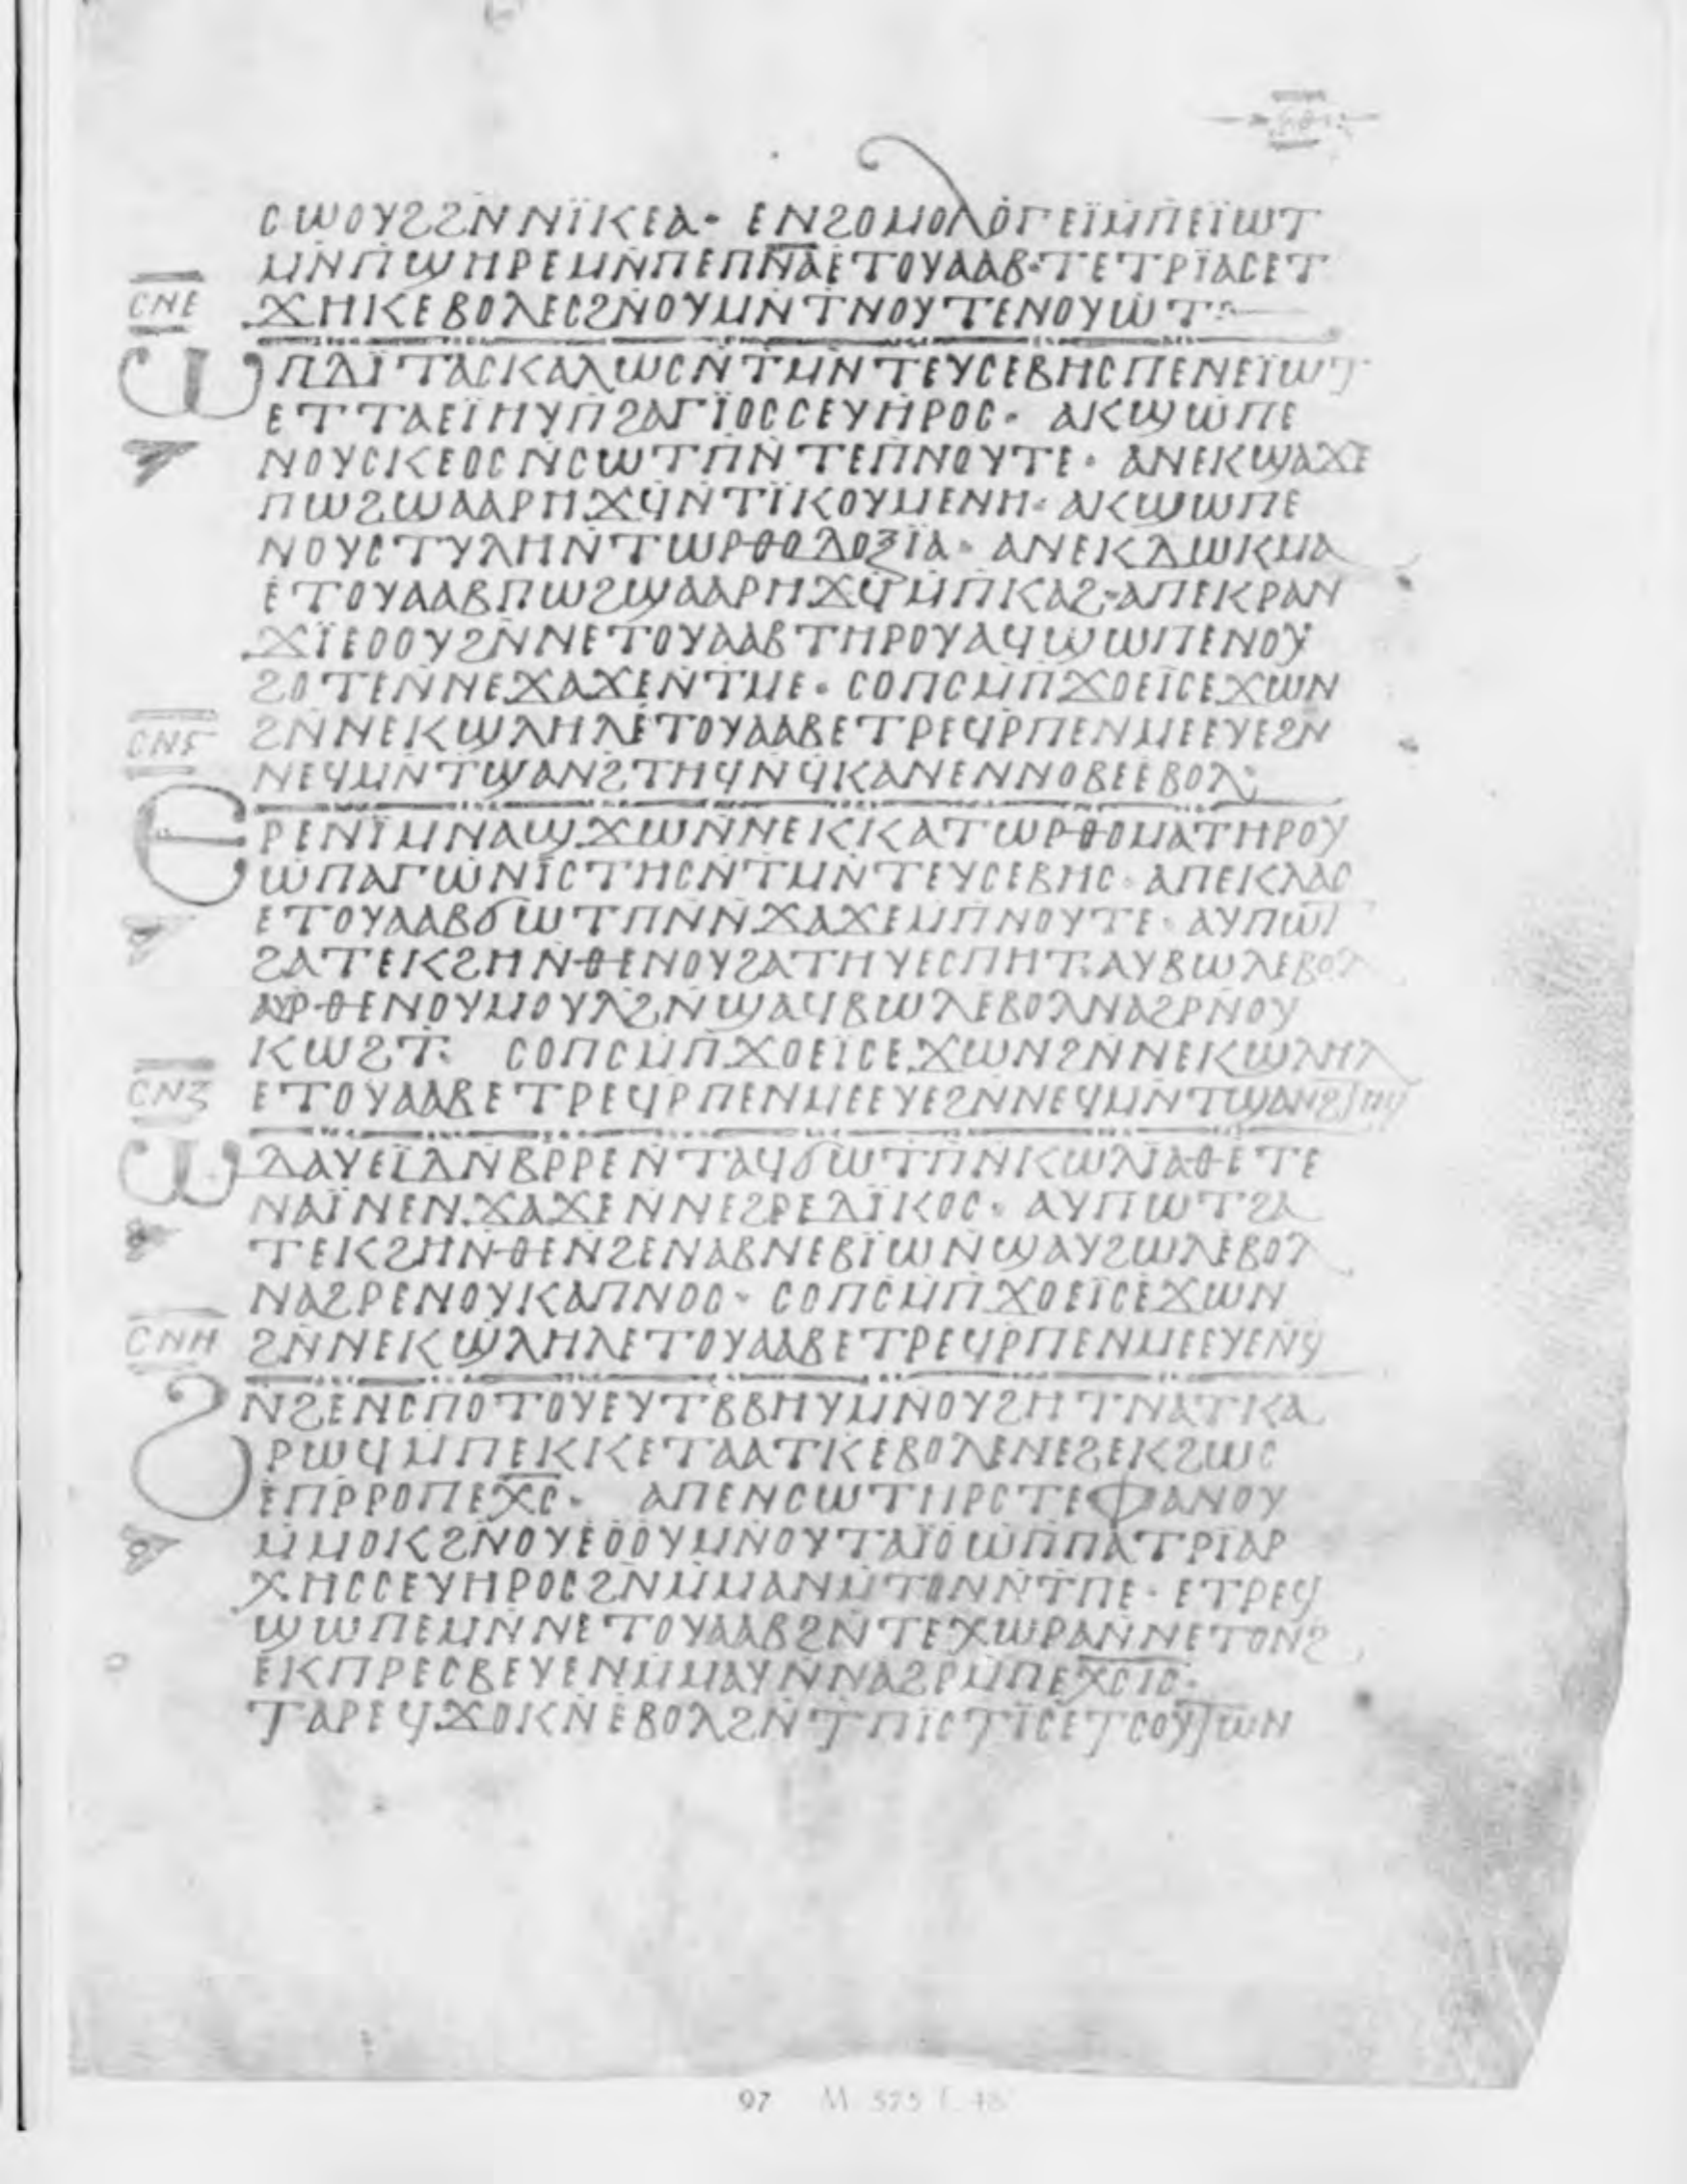 ⲥⲱⲟⲩϩϩⲛⲛⲓ̈ⲕⲉⲁ· ⲉⲛϩⲟⲙⲟⲗⲟⲅⲉⲓ̈ⲙ̇ⲡⲉⲓ̈ⲱⲧ
ⲙⲛ̇ⲡϣⲏⲣⲉⲙⲛ̇ⲡⲉⲡⲛ̅ⲁ̅ⲉⲧⲟⲩⲁⲁⲃ·ⲧⲉⲧⲣⲓ̈ⲁⲥⲉⲧ
ⲥⲛⲉ
ϫⲏⲕⲉⲃⲟⲗⲉⲥϩⲛ̇ⲟⲩⲙⲛ̇ⲧⲛⲟⲩⲧⲉⲛⲟⲩⲱⲧ:
ⲱ ⲡⲇⲓ̈ⲧⲁⲥⲕⲁⲗⲱⲥⲛ̇ⲧⲙⲛ̇ⲧⲉⲩⲥⲉⲃⲏⲥⲡⲉⲛⲉⲓ̈ⲱⲧ
ⲉⲧⲧⲁⲉⲓ̈ⲏⲩⲡ̇ϩⲁⲅⲓ̈ⲟⲥⲥⲉⲩⲏⲣⲟⲥ· ⲁⲕϣⲱⲡⲉ
ⲛⲟⲩⲥⲕⲉⲟⲥⲛ̇ⲥⲱⲧⲡⲛ̇ⲧⲉⲡⲛⲟⲩⲧⲉ· ⲁⲛⲉⲕϣⲁϫⲉ
ⲡⲱϩϣⲁⲁⲣⲏϫϥⲛ̇ⲧⲓ̈ⲕⲟⲩⲙⲉⲛⲏ· ⲁⲕϣⲱⲡⲉ
ⲛⲟⲩⲥⲧⲩⲗⲏⲛ̇ⲧⲱⲣⲑⲟⲇⲟⲝⲓ̈ⲁ· ⲁⲛⲉⲕⲇⲱⲕⲙⲁ
ⲉⲧⲟⲩⲁⲁⲃⲡⲱϩϣⲁⲁⲣⲏϫϥ̇ⲙ̇ⲡⲕⲁϩ·ⲁⲡⲉⲕⲣⲁⲛ
ϫⲓ̈ⲉⲟⲟⲩϩⲛ̇ⲛⲉⲧⲟⲩⲁⲁⲃⲧⲏⲣⲟⲩⲁϥϣⲱⲡⲉⲛⲟⲩ
ϩⲟⲧⲉⲛ̇ⲛⲉϫⲁϫⲉⲛ̇ⲧⲙⲉ· ⲥⲟⲡⲥⲙ̇ⲡϫⲟⲉⲓ̈ⲥⲉϫⲱⲛ
ⲥⲛⲋ
ϩⲛ̇ⲛⲉⲕϣⲗⲏⲗⲉⲧⲟⲩⲁⲁⲃⲉⲧⲣⲉϥⲣ̇ⲡⲉⲛⲙⲉⲉⲩⲉϩⲛ
ⲛⲉϥⲙⲛ̇ⲧϣⲁⲛϩⲧⲏϥⲛϥ̇ⲕⲁⲛⲉⲛⲛⲟⲃⲉⲉⲃⲟⲗ:
ⲉ ⲣⲉⲛⲓ̈ⲙⲛⲁϣϫⲱⲛ̇ⲛⲉⲕⲕⲁⲧⲱⲣⲑⲟⲙⲁⲧⲏⲣⲟⲩ
ⲱ̇ⲡⲁⲅⲱⲛⲓ̈ⲥⲧⲏⲥⲛ̇ⲧⲙⲛ̇ⲧⲉⲩⲥⲉⲃⲏⲥ· ⲁⲡⲉⲕⲗⲁⲥ
ⲉⲧⲟⲩⲁⲁⲃϭⲱⲧⲡⲛ̇ⲛϫⲁϫⲉⲙⲡⲛⲟⲩⲧⲉ· ⲁⲩⲡⲱⲧ
ϩⲁⲧⲉⲕϩⲏⲛ̇ⲑⲉⲛⲟⲩϩⲁⲧⲏⲩⲉⲥⲡⲏⲧ:ⲁⲩⲃⲱⲗⲉⲃⲟⲗ
ⲁⲩⲣ̇ⲑⲉⲛⲟⲩⲙⲟⲩⲗϩⲛ̇ϣⲁϥⲃⲱⲗⲉⲃⲟⲗⲛⲁϩⲣⲛ̇ⲟⲩ
ⲕⲱϩⲧ: ⲥⲟⲡⲥⲙ̇ⲡϫⲟⲉⲓ̈ⲥⲉϫⲱⲛϩⲛ̇ⲛⲉⲕϣⲗⲏⲗ
ⲥⲛⲍ
ⲉⲧⲟⲩⲁⲁⲃⲉⲧⲣⲉϥⲣ̇ⲡⲉⲛⲙⲉⲉⲩⲉϩⲛ̇ⲛⲉϥⲙⲛ̇ⲧϣⲁⲛϩⲧⲏϥ
ⲱ ⲇⲁⲩⲉⲓ̈ⲇⲛ̇ⲃⲣⲣⲉⲛ̇ⲧⲁϥϭⲱⲧⲡⲛ̇ⲕⲱⲗⲓ̈ⲁⲑⲉⲧⲉ
ⲛⲁⲓ̈ⲛⲉⲛϫⲁϫⲉⲛ̇ⲛⲉϩⲣⲉⲇⲓ̈ⲕⲟⲥ· ⲁⲩⲡⲱⲧϩⲁ
ⲧⲉⲕϩⲏⲛ̇ⲑⲉⲛϩⲉⲛⲁⲃⲛⲉⲃⲓ̈ⲱⲛϣⲁⲩϩⲱⲗⲉⲃⲟⲗ
ⲛⲁϩⲣⲉⲛⲟⲩⲕⲁⲡⲛⲟⲥ· ⲥⲟⲡⲥⲙ̇ⲡϫⲟⲉⲓ̈ⲥⲉϫⲱⲛ
ⲥⲛⲏ
ϩⲛ̇ⲛⲉⲕϣⲗⲏⲗⲉⲧⲟⲩⲁⲁⲃⲉⲧⲣⲉϥⲣ̇ⲡⲉⲛⲙⲉⲉⲩⲉⲛϥ̇
ϩ ⲛϩⲉⲛⲥⲡⲟⲧⲟⲩⲉⲩⲧⲃⲃⲏⲩⲙⲛ̇ⲟⲩϩⲏⲧⲛⲁⲧⲕⲁ
ⲣⲱϥⲙ̇ⲡⲉⲕⲕⲉⲧⲁⲁⲧⲕ̇ⲉⲃⲟⲗⲉⲛⲉϩⲉⲕϩⲱⲥ
ⲉⲡⲣ̇ⲣⲟⲡⲉⲭ̅ⲥ̅· ⲁⲡⲉⲛⲥⲱⲧⲏⲣⲥⲧⲉⲫⲁⲛⲟⲩ
ⲙ̇ⲙⲟⲕϩⲛ̇ⲟⲩⲉⲟⲟⲩⲙⲛ̇ⲟⲩⲧⲁⲓ̈ⲟⲱ̇ⲡⲡⲁⲧⲣⲓ̈ⲁⲣ
ⲭⲏⲥⲥⲉⲩⲏⲣⲟⲥϩⲛ̇ⲙ̇ⲙⲁⲛⲙ̇ⲧⲟⲛⲛ̇ⲧⲡⲉ· ⲉⲧⲣⲉϥ
ϣⲱⲡⲉⲙⲛ̇ⲛⲉⲧⲟⲩⲁⲁⲃϩⲛ̇ⲧⲉⲭⲱⲣⲁⲛ̇ⲛⲉⲧⲟⲛϩ
ⲉⲕⲡⲣⲉⲥⲃⲉⲩⲉⲛⲙ̇ⲙⲁⲩⲛ̇ⲛⲁϩⲣⲙ̇ⲡⲉⲭ̅ⲥ̅ⲓ̅ⲥ̅:
ⲧⲁⲣⲉϥϫⲟⲕⲛ̇ⲉⲃⲟⲗϩⲛ̇ⲧⲡⲓ̈ⲥⲧⲓ̈ⲥⲉⲧⲥⲟⲩⲧⲱⲛ
97 M 575 f. 48